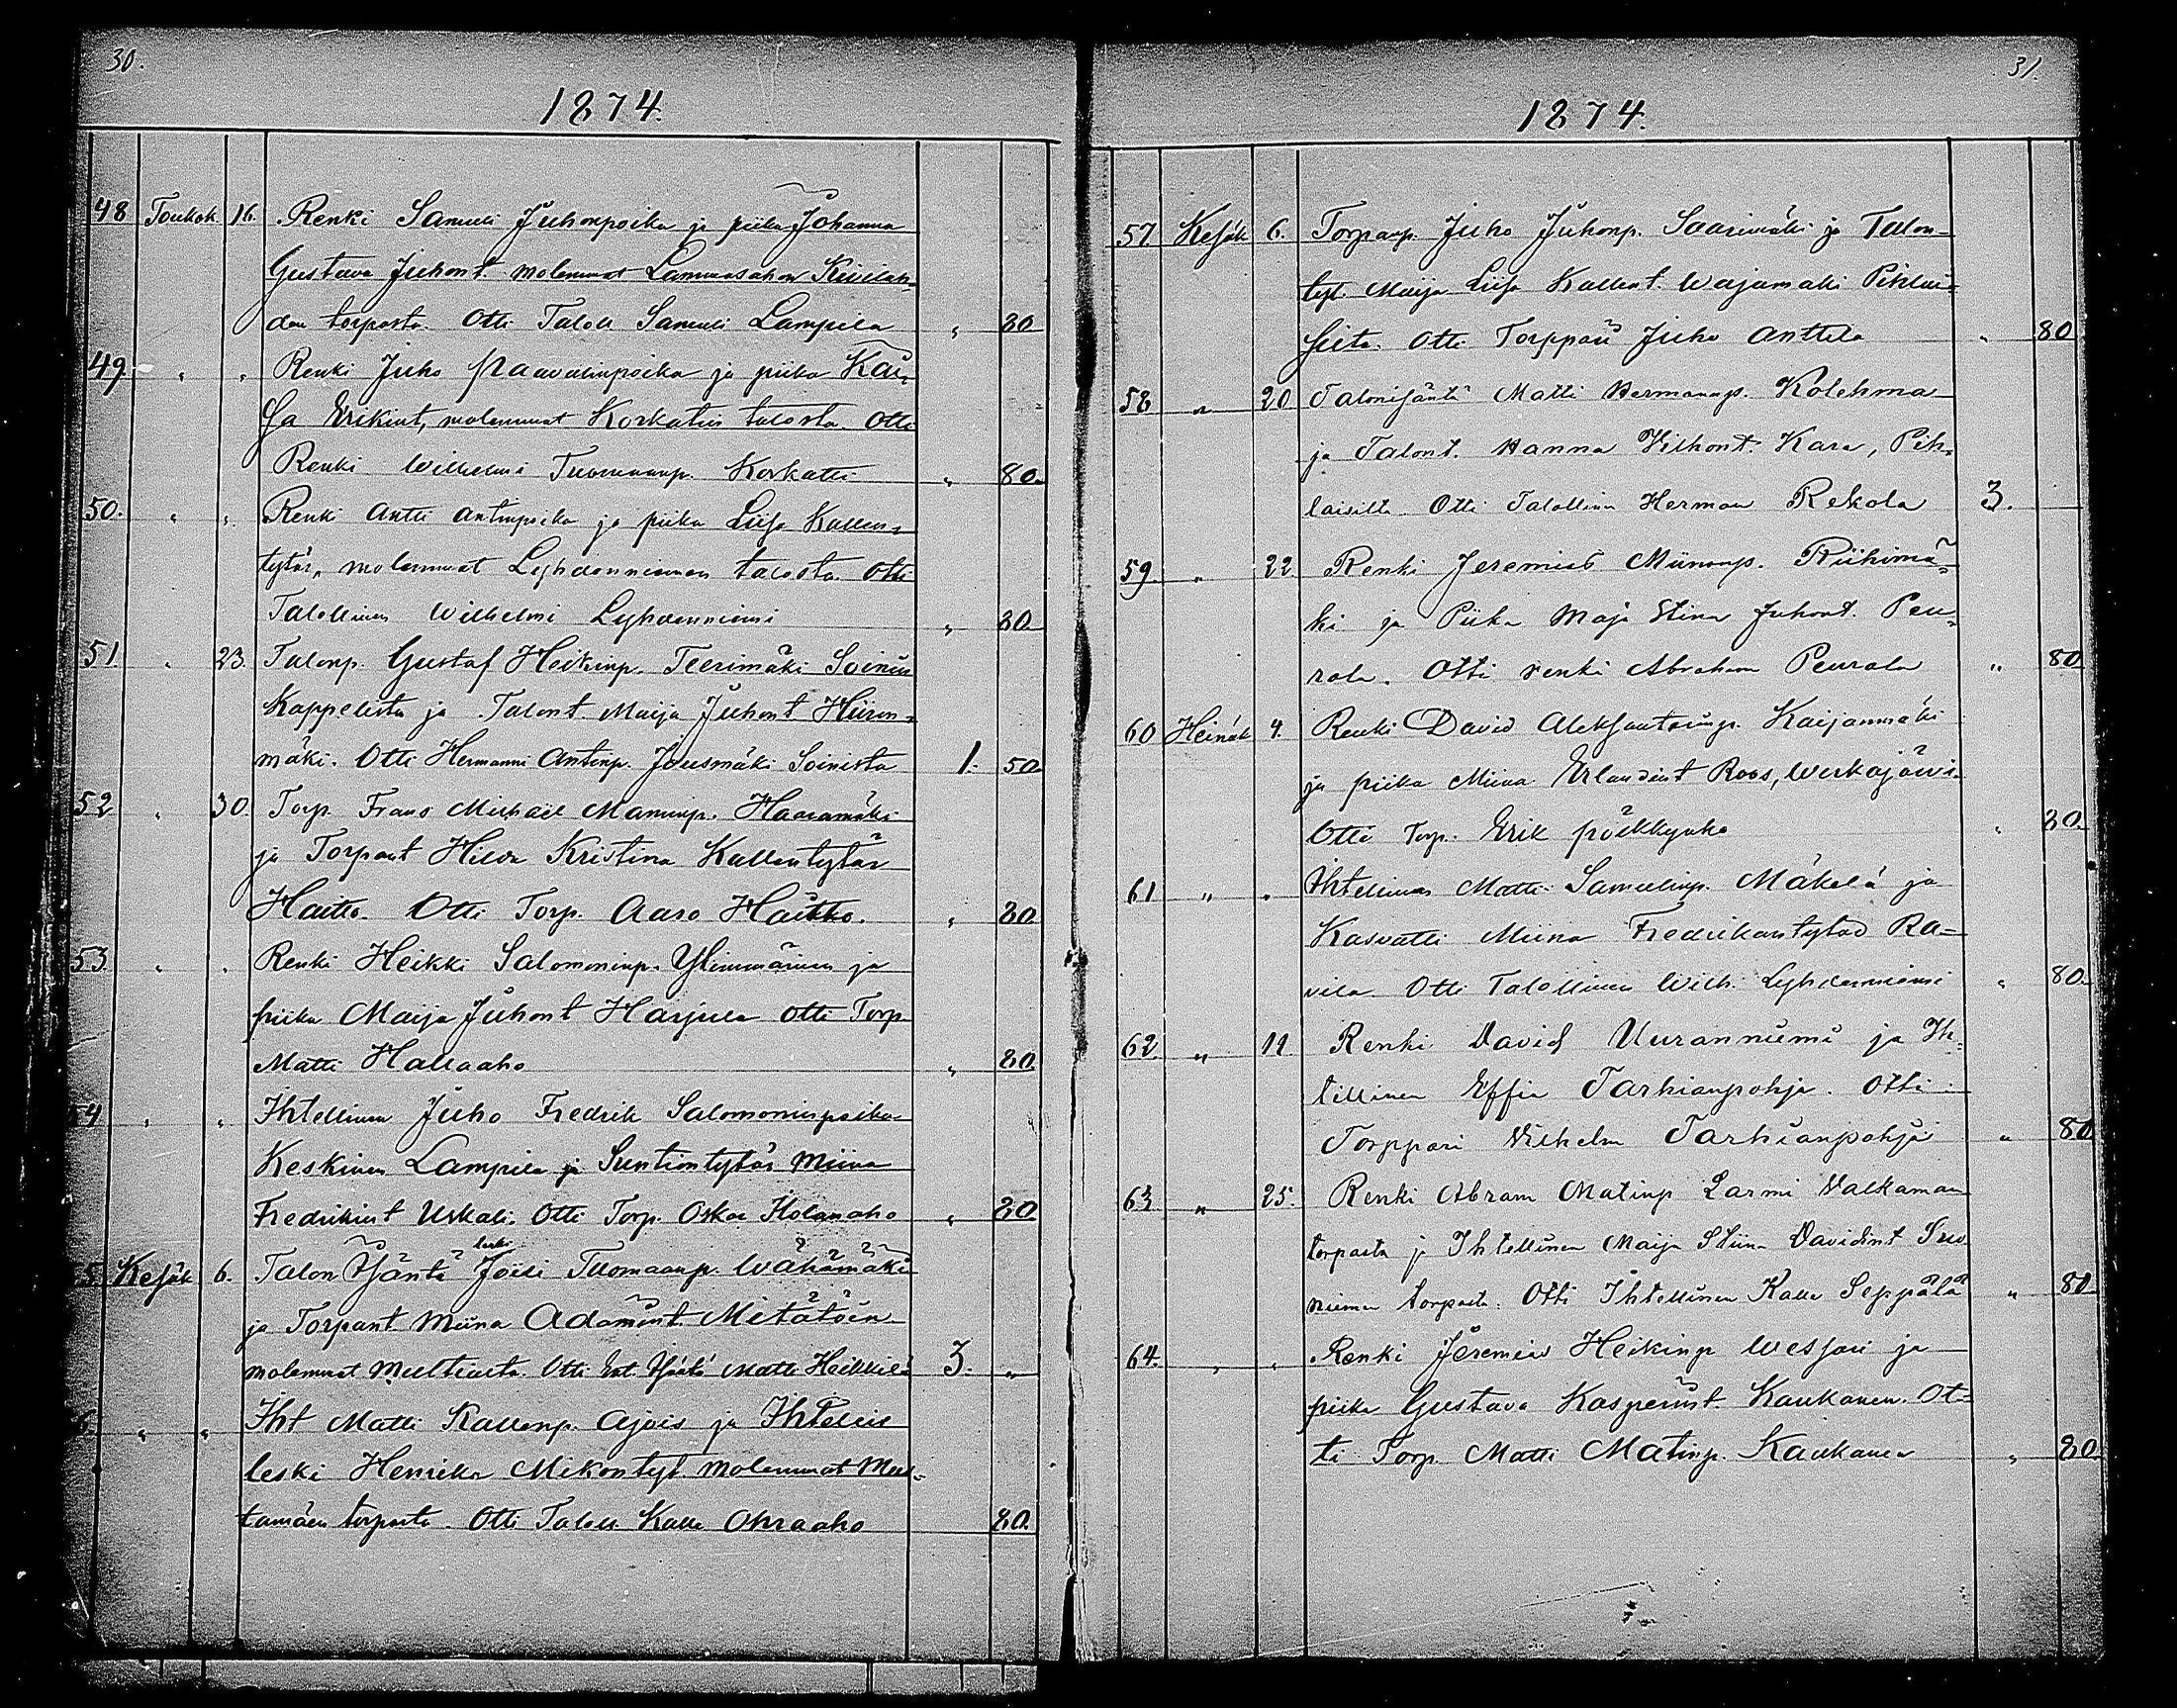 30.
1874.
48 Toukok. 16. Renki Samuli Juhonpoika ja piika Johanna
Gustava Juhont. molemmat Lammasahon Kivilah-
den torpasta. Otti Taloll Samuli Lampila „ 80
49. „ „ Renki Juho Paavalinpoika ja piika Kai-
sa Erikint, molemmat Korkatin talosta. Otti
Renki Wilhelmi Tuomaanp. Korkatti „ 80.
50. „ „ Renki Antti Antinpoika ja piika Liisa Kallen-
tytär, molemmat Lyhdenniemen talosta. Otti
Talollinen Wilhelmi Lyhdenniemi „ 80.
51. „ 23. Talonp. Gustaf Heikinp. Teerimäki Soinin
Kappelista ja Talont. Maija Juhont Hiiren-
mäki. Otti Hermanni Antinp. Jousmäki Soinista 1. 50.
52 „ 30. Torp. Frans Michaël Manninp. Haaramäki
ja Torpant Hilda Kristina Kallentytär
Haitto. Otti Torp. Aaro Haitto. „ 80.
53. „ „ Renki Heikki Salomoninp. Ylimmäinen ja
piika Maija Juhont Harjula Otti Torp
Matti Hallaaho „ 80.
54 „ „ Ihtellinen Juho Fredrik Salomoninpoika
Keskinen Lampila ja Suntiontytär Miina
Fredrikint Uskali. Otti Torp. Oskar Holanaho „ 80
5. Kesäk 6. Talon Isäntä leski Joeli Tuomaanp. Wähämäki
ja Torpant. Miina Adamint. Metätöin
molemmat Multiasta. Otti Ent. Isäntä Matti Heikkilä 3. „
6. „ „ Iht Matti Kallenp. Ajois ja Ihtellis
leski Henrika Mikontyt. molemmat Mus-
tamäen torpasta. Otti Taloll. Kalle Ohraaho 80.
31.
1874.
57 Kesäk 6. Torpanp. Juho Juhonp. Saarimäki ja Talon-
tyt. Maija Liisa Kallent. Wajamäki Pihlai-
sista. Otti Torppari Juho Anttila „ 80
58 „ 20 Talonisäntä Matti Hermannp. Kolehma
ja Talont. Hanna Vilhont. Kara, Pih-
laisilta Otti Talollinen Herman Rekola 3.
59. „ 22 Renki Jeremias Miinanp. Riihimä-
ki ja Piika Maja Stina Juhont. Peu-
rala. Otti renki Abraham Peurala „ 80
60 Heinäk 4. Renki David Aleksanterinp. Kaijanmäki
ja piika Miina Erlandint Roos, Werkajärvi
Otti Torp. Erik Pölkkynko „ 80.
61 „ „ Ihtellinen Matti Samulinp. Mäkelä ja
Kasvatti Miina Fredrikantytär Ra-
vila. Otti Talollinen Wilh. Lyhdenniemi „ 80.
62 „ 11 Renki David Uuranniemi ja Ih-
tillinen Effia Tarhianpohja. Otti
Torppari Vilhelm Tarhianpohja „ 80
63 „ 25. Renki Abram Matinp Larmi Valkaman
torpasta ja Ihtellinen Maija Stiina Davidint Suo
niemen torpasta. Otti Ihtellinen Kalle Seppälä „ 80
64. „ „ Renki Jeremias Heikinp Wessari ja
piika Gustava Kasperint. Kaukanen. Ot-
ti Torp. Matti Matinp. Kaukanen „ 80.